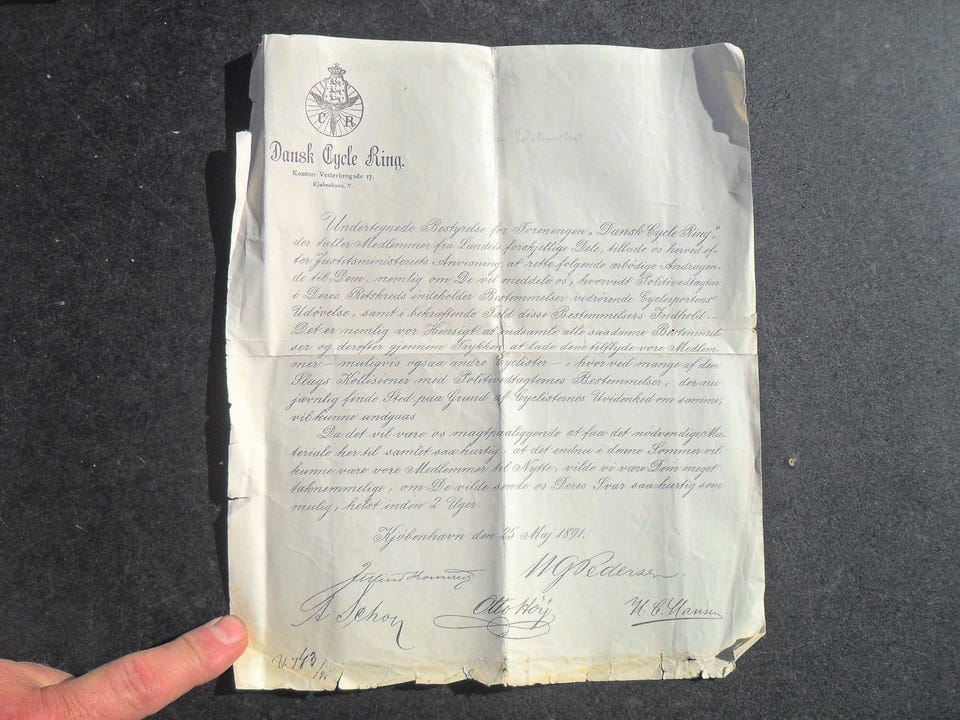 C R
Dansk Cycle Ring.
Kontor: Vesterbrogade 17.
Kjøbenhavn, V.
Undertegnede Bestyrelse for Foreningen „Dansk Cycle Ring,"
der tæller Medlemmer fra Landets forskjellige Dele, tillade os herved ef-
ter Justitsministeriets Anvisning at rette følgende ærbødige Andragen-
de til Dem, nemlig om De vil meddele os, hvorvidt Politivedtægten
i Deres Retskreds indeholder Bestemmelser vedrørende Cyclesportens
Udøvelse, samt i bekræftende Fald disse Bestemmelsers Indhold. –
Det er nemlig vor Hensigt at indsamle alle saadanne Bestemmel-
ser og derefter gjennem Trykken at lade dem tilflyde vore Medlem-
mer – muligvis ogsaa andre Cyclister –, hvorved mange af den
Slags Kollisioner med Politivedtægternes Bestemmelser, der nu
jævnlig finde Sted paa Grund af Cyclisternes Uvidenhed om samme,
vil kunne undgaas.
Da det vil være os magtpaaliggende at faa det nødvendige Ma-
teriale her til samlet saa hurtig, at det endnu i denne Sommer vil
kunne være vore Medlemmer til Nytte, vilde vi være Dem meget
taknemmelige, om De vilde sende os Deres Svar saa hurtig som
mulig, helst inden 2 Uger.
Kjøbenhavn den 25 Maj 1891.
W G Pedersen.
A Schou
Otto Høÿ
N. C. Hansen